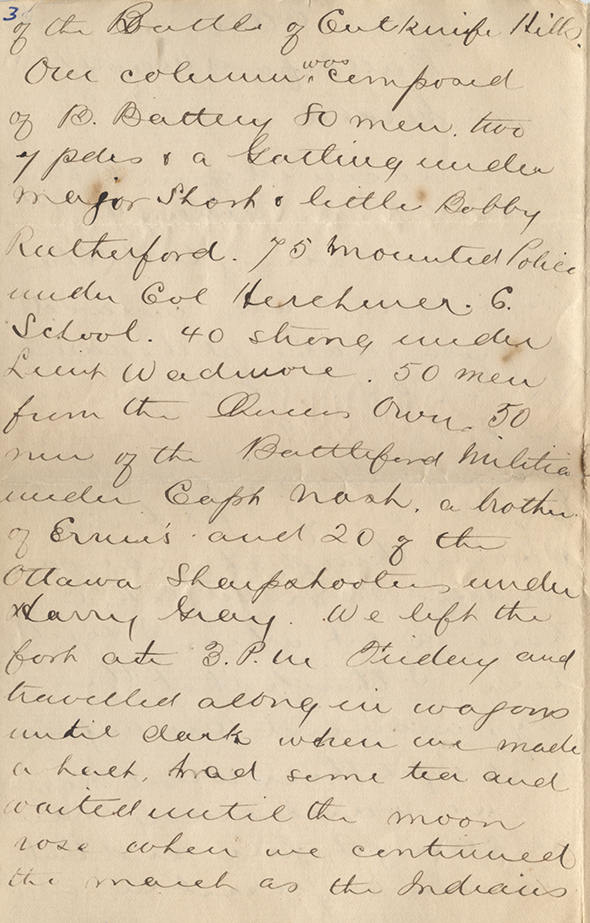 3
of the Battle of Cutknife Hills.
Our column was composed
of B. Battery 80 men. two
7 pdrs & a Gatling under
Major Short & little Bobby
Rutherford. 75 Mounted Police
under Col Herchmer. C.
School. 40 strong under
Lieut Wadmore. 50 men
from the Queens Own. 50
men of the Battleford Militia
under Capt Nash, a brother
of Ernie's and 20 of the
Ottawa Sharpshooters under
Harry Gray. We left the
fort at 3. P.M Friday and
travelled along in wagons
until dark when we made
a halt, had some tea and
waited until the moon
rose when we continued
the march as the Indians